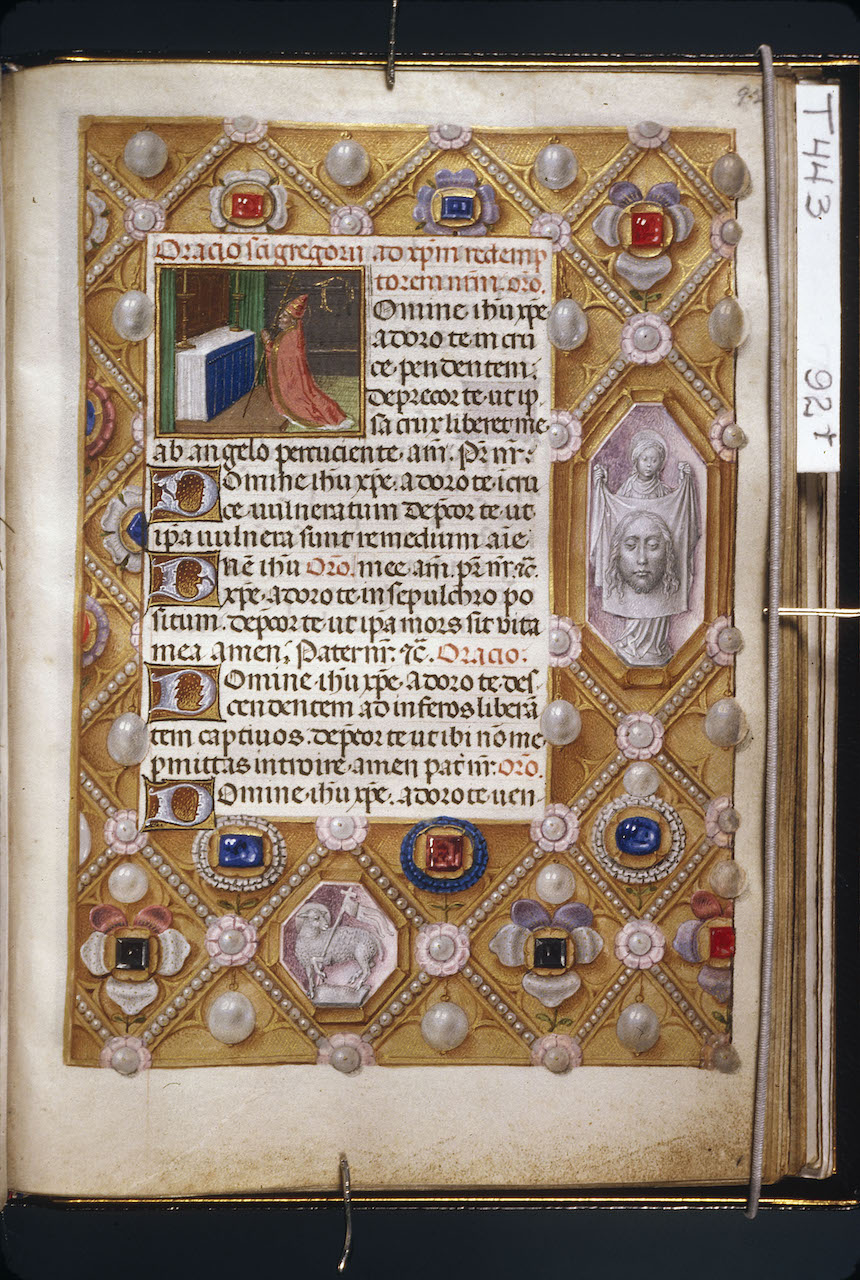 Oracio sci gregorii ad xpm redemp
torem nrm. oro.
Omine ihu xpe
adoro te in cru
ce pendentem,
deprecor te ut ip
sa crux liberet me
ab angelo percuciente. am. Pr nr.
Domine ihu xpe adoro te i cru
ce vulneratum depcor te ut
ipa vulnera sunt remedium aie
Dne ihu Oro. mee. am. pr nr. ꝛc.
xpe adoro te in sepulchro po
situm. depcor te ut ipa mors sit vita
mea amen. Pater nr. ꝛc. Oracio.
Domine ihu xpe adoro te des
cendentem ad inferos libera
tem captivos. depcor te ut ibi no me
pmittas introire. amen pat nr. oro.
Domine ihu xpe. adoro te ven
T 443
92r